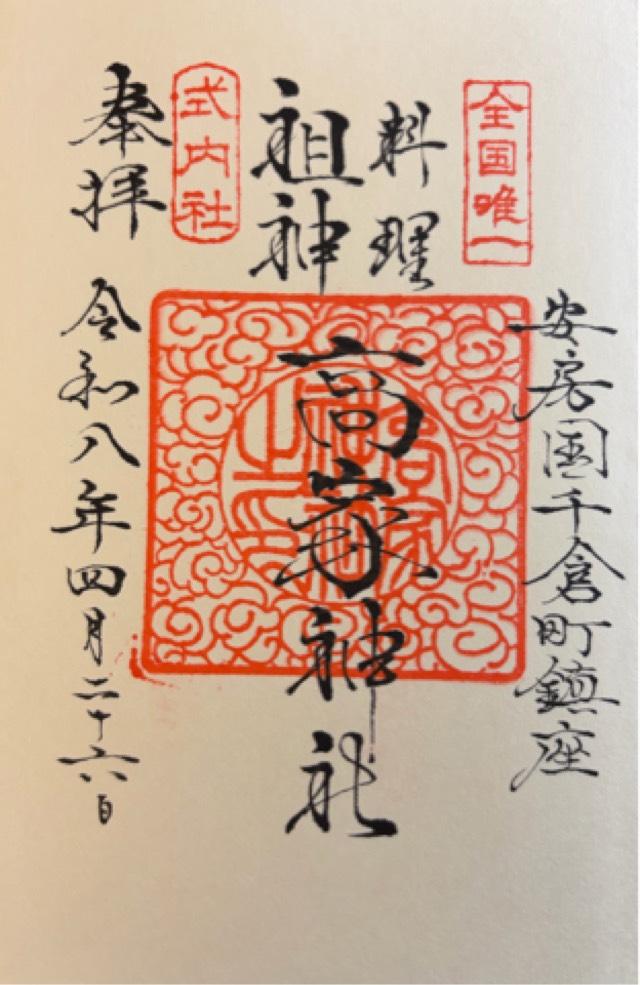 安房国千倉町鎮座
全国唯一
料理
祖神
高家神社
式内社
奉拝
令和八年四月二十六日